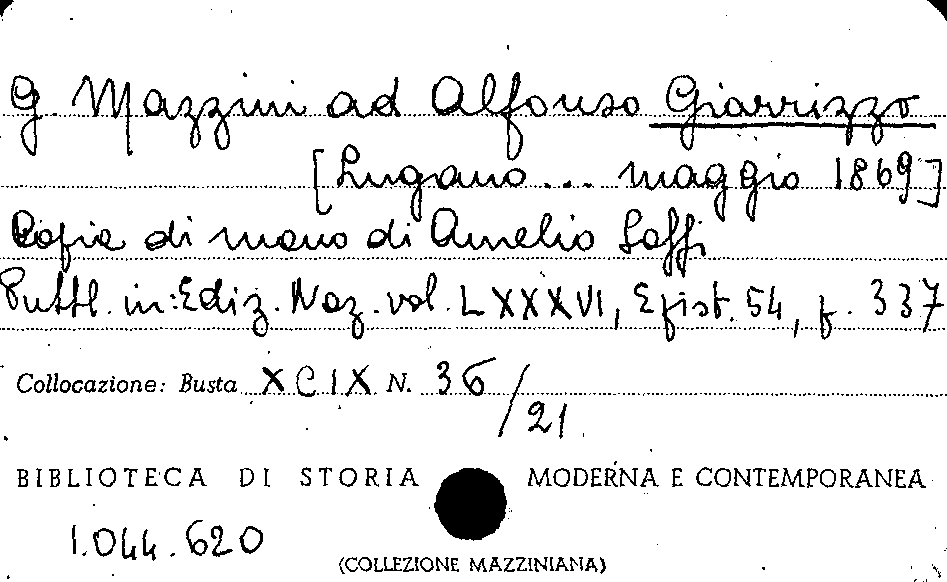 G. Mazzini ad Alfonso Giarrizzo
[Lugano ... maggio 1869]
Copia di mano di Aurelio Saffi
Pubbl. in: Ediz. Naz. vol. LXXXVI, Epist. 54, p. 337
Collocazione: Busta XCIX N. 36/21
BIBLIOTECA DI STORIA MODERNA E CONTEMPORANEA
1.044.620
(COLLEZIONE MAZZINIANA)